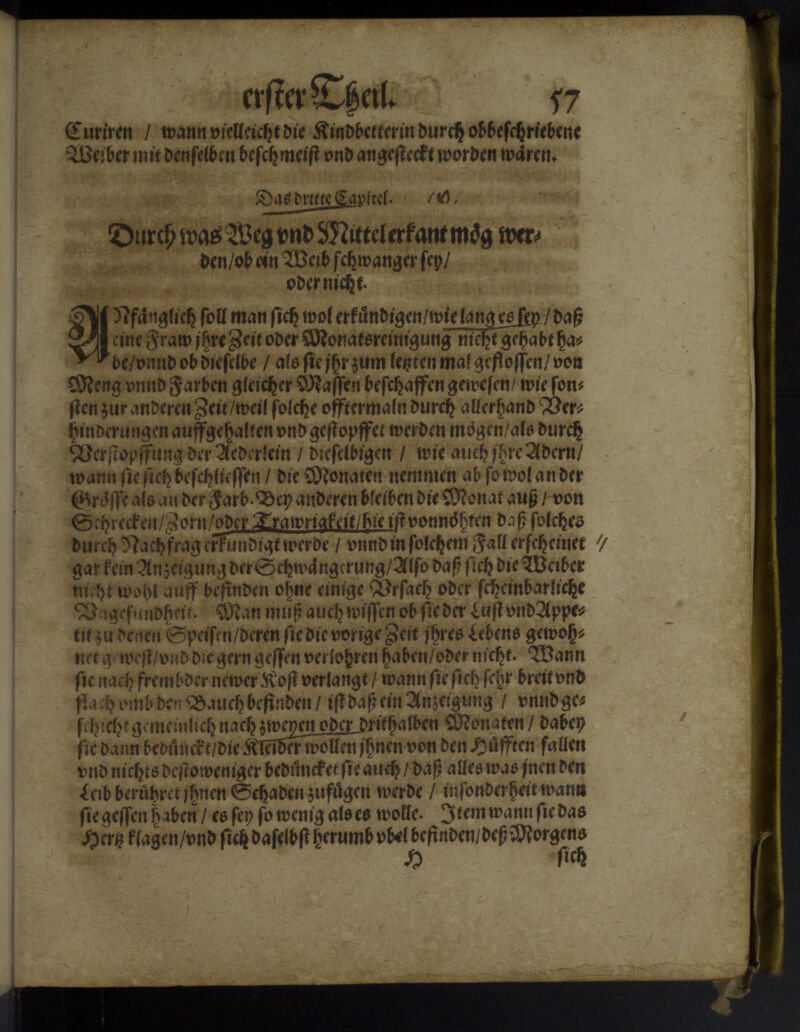 erster Theil. 57
Curiren / wann vielleicht die Kindbetterin durch obbeschriebene
Weiber mit denselben beschmeist vnd angesteckt worden wären.
Das dritte Capitel.
Durch was Weg vnd Mittel erkant mög wer-
den / ob ein Weib schwanger sey /
oder nicht.
ANfänglich soll man sich wol erkündigen / wie lang es sey / daß
eine Fraw jhre Zeit oder Monatsreinigung nicht gehabt ha-
be / vnnd ob dieselbe / als sie jhr zum letzten mal geflossen / von
Meng vnnd Farben gleicher Massen beschaffen gewesen / wie son-
sten zur anderen Zeit / weil solche offtermaln durch allerhand Ver-
hinderungen auffgehalten vnd gestopffet werden mögen / als durch
Verstopffung der Aederlein / dieselbigen / wie auch jhre Adern /
wann sie sich beschliessen / die Monaten nemmen ab so wol an der
Grösse als an der Farb. Bey anderen bleiben die Monat auß / von
Schrecken / Zorn / oder Trawrigkeit / hie ist vonnöhten daß solches
durch Nachfrag erkundigt werde / vnnd in solchem Fall erscheinet //
gar kein Anzeigung der Schwängerung / Also daß sich die Weiber
nicht wohl auff befinden ohne einige Vrsach oder scheinbarliche
Vngesundheit. Man muß auch wissen ob sie der Lust vnd Appe-
tit zu denen Speisen / deren sie die vorige Zeit jhres Lebens gewoh-
net gewest / vnd die gern gessen verlohren haben / oder nicht. Wann
sie nach frembder newer Kost verlangt / wann sie sich sehr breit vnd
flach vmb den Bauch befinden / ist daß ein Anzeigung / vnnd ge-
schicht gemeinlich nach zweyen oder drithalben Monaten / dabey
sie dann bedünckt / die Kleider wollen jhnen von den Hüfften fallen
vnd nichts destoweniger bedüncket sie auch / daß alles was jnen den
Leib berühret jhnen Schaden zufügen werde / insonderheit wann
sie gessen haben / es sey so wenig als es wolle. Item wann sie das
Hertz klagen / vnd sich daselbst herumb vbel befinden / deß Morgens
H sich